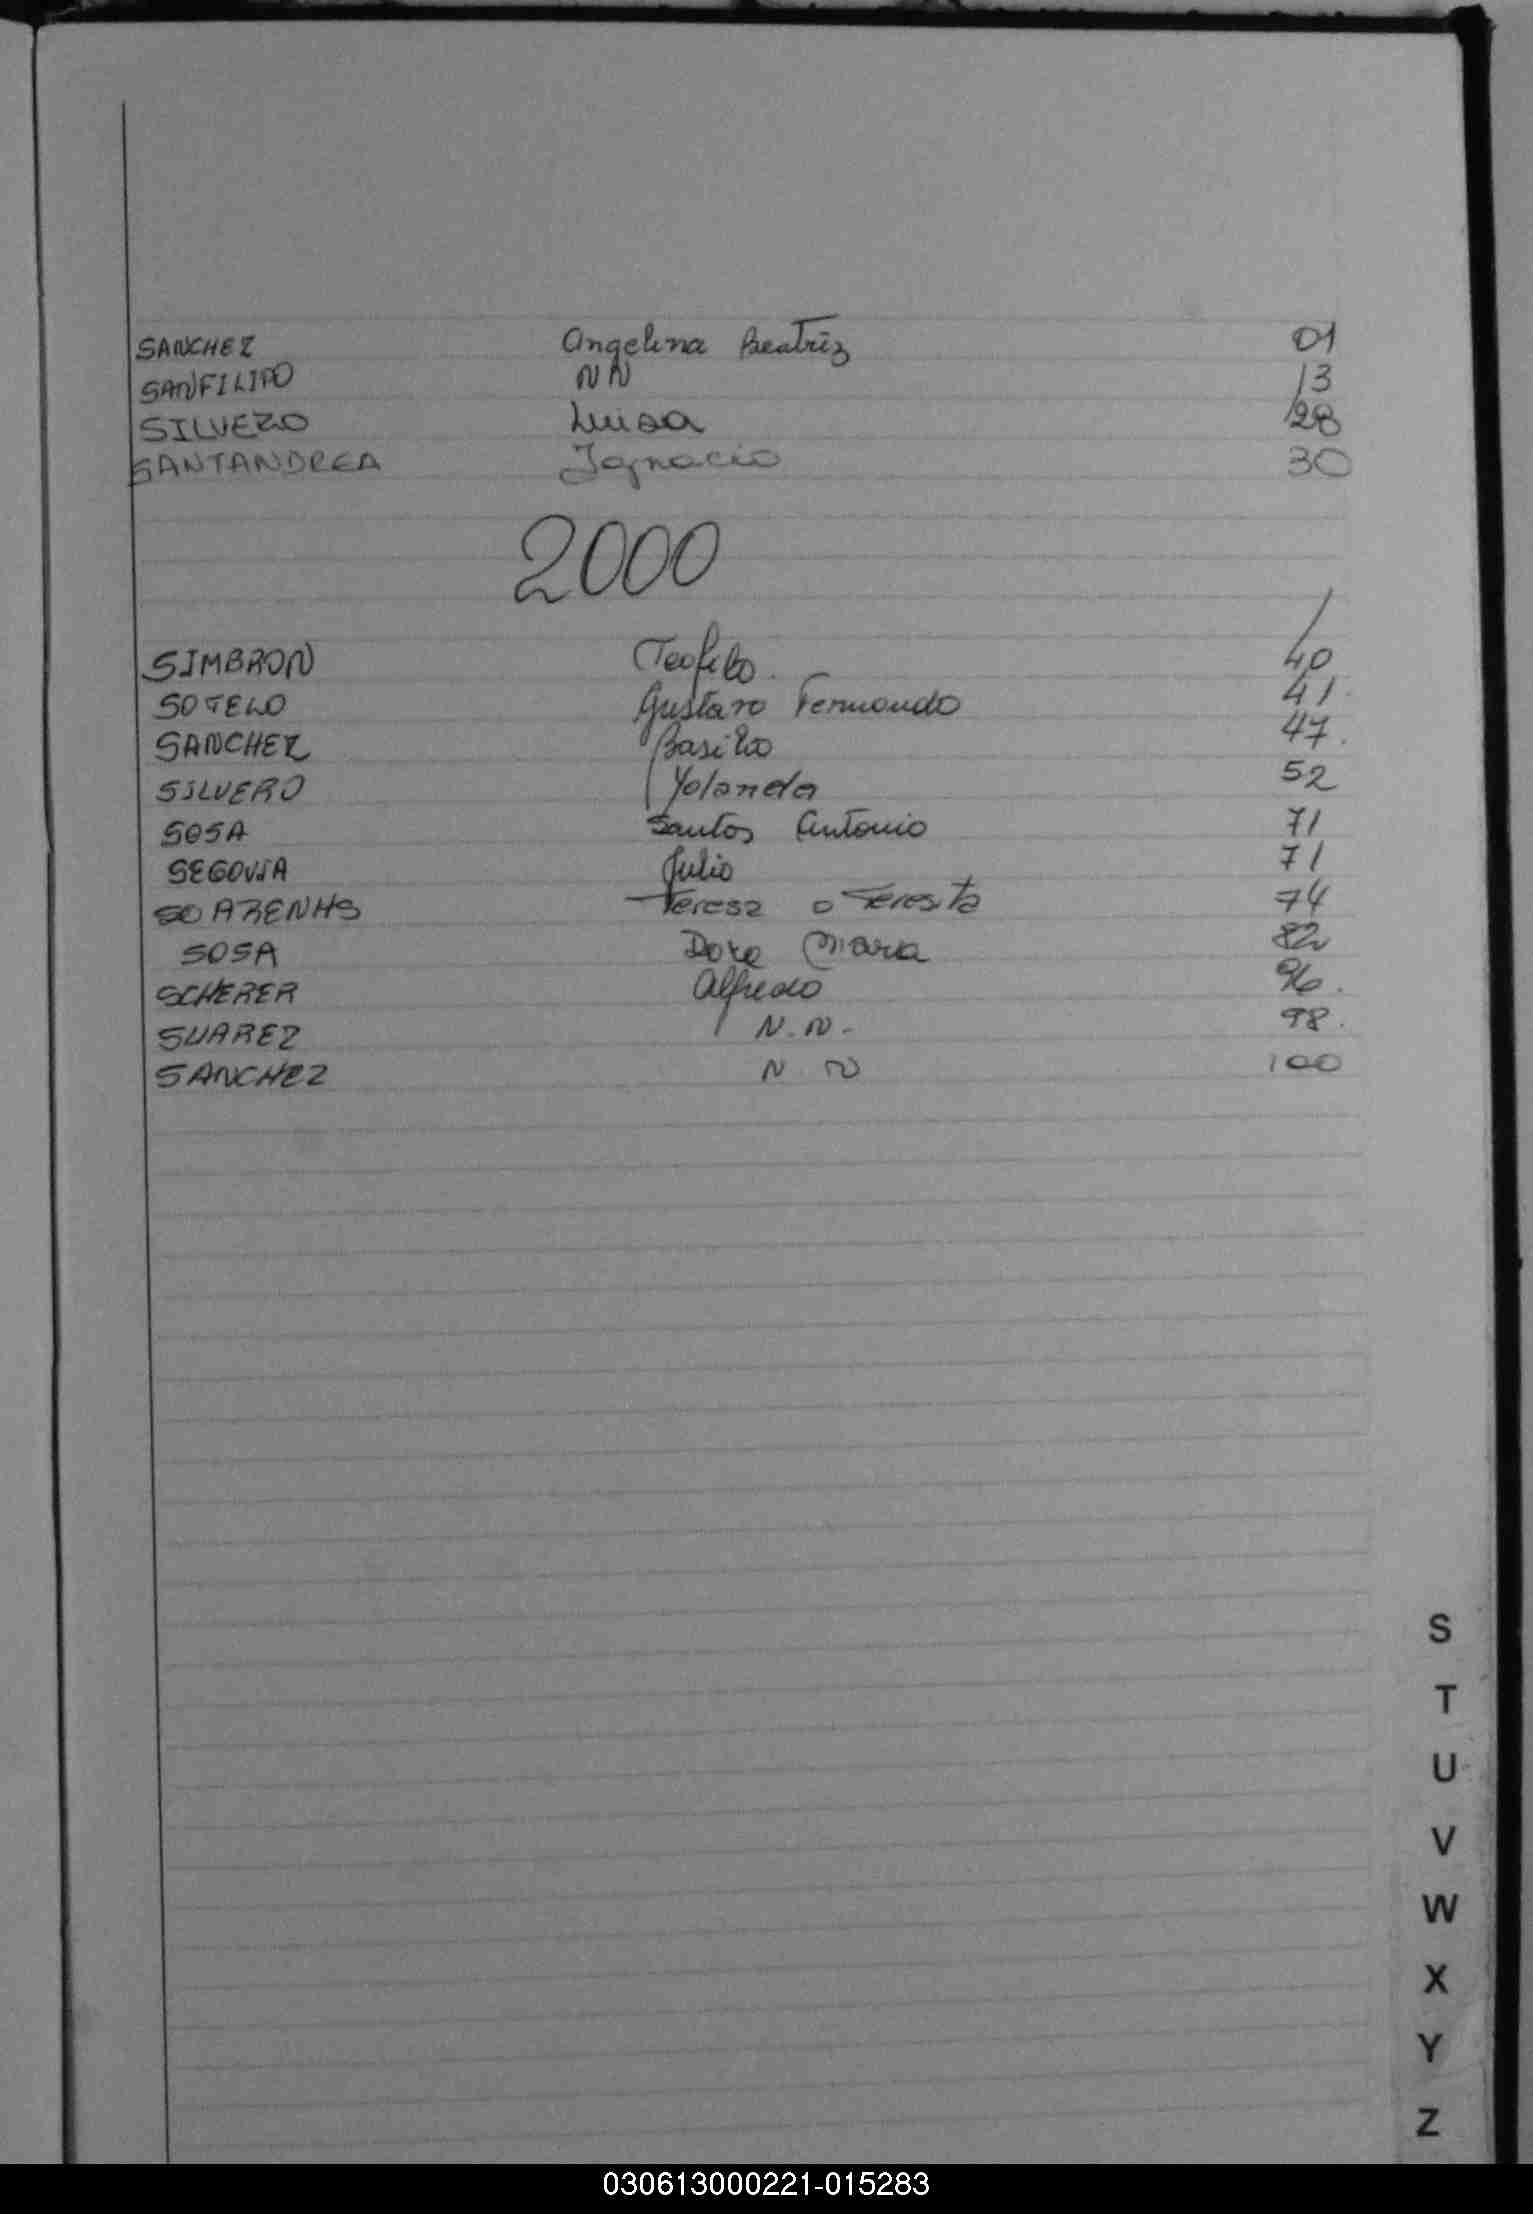 SANCHEZ Angelina Beatriz 01
SANFILIPO NN 13
SILVERO Luisa 28
SANTANDREA Ignacio 30
2000
SIMBRON Teofilo 40
SOTELO Gustavo Fernando 41
SANCHEZ Basilio 47
SILVERO Yolanda 52
SOSA Santos Antonio 71
SEGOVIA Julio 71
Teresa o Teresita 74
SOSA Dora Maria 82
SCHERER Alfredo 96
SUAREZ N.N. 98
SANCHEZ N.N 100
S
T
U
V
W
X
Y
Z
030613000221-015283